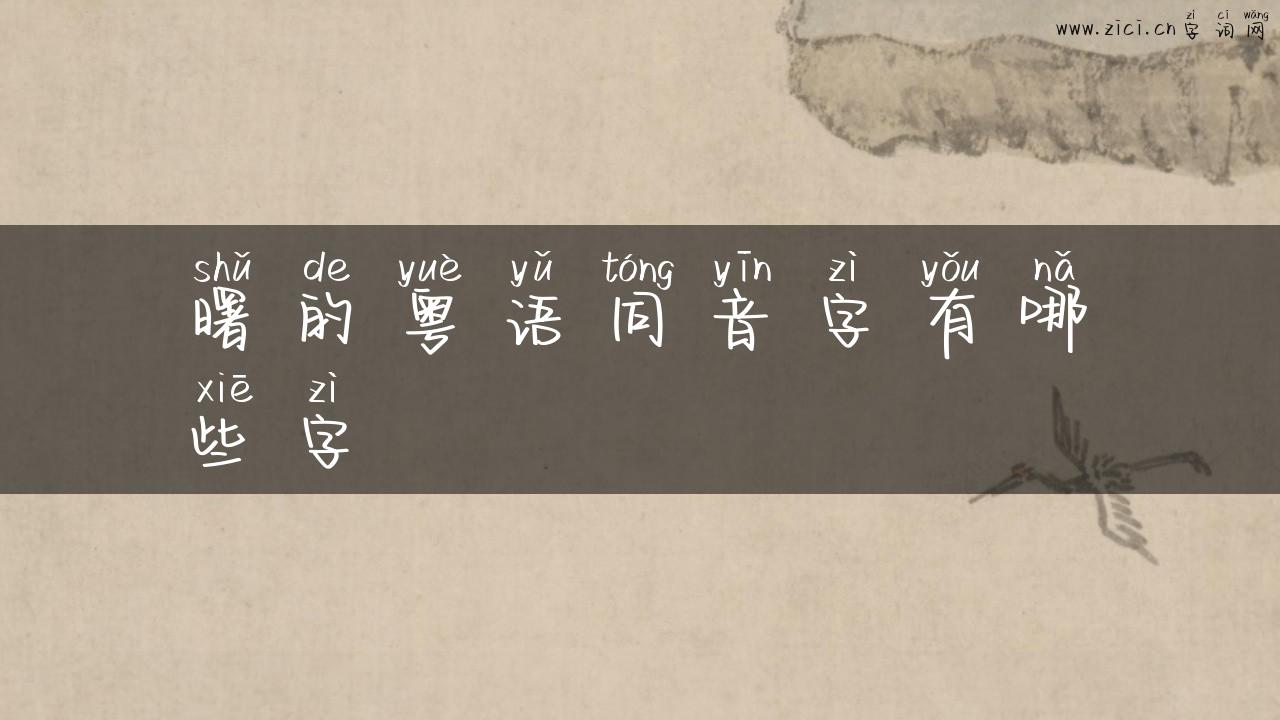 zì cí wǎng
www.zici.cn 字 词 网
shǔ de yuè yǔ tóng yīn zì yǒu nǎ
曙 的 粤 语 同 音 字 有 哪
xiē zì
些 字